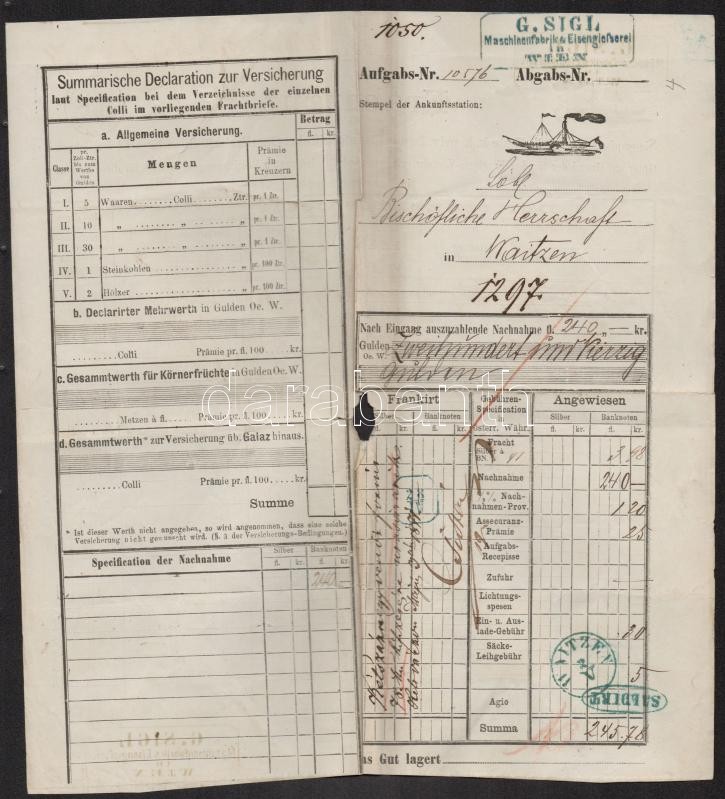 1050.
G. SIGL
Maschinenfabrik & Eisengießerei
in
WIEN
Aufgabs-Nr. 10576 Abgabs-Nr.
4
Stempel der Ankunftsstation:
Löbl
Bischöfliche Herrschaft
in Waitzen
1297.
Nach Eingang auszuzahlende Nachnahme fl. 240 „ — kr.
Gulden Oe. W. Zweihundert und Vierzig
Gulden
Summarische Declaration zur Versicherung
laut Specification bei dem Verzeichnisse der einzelnen
Colli im vorliegenden Frachtbriefe.
a. Allgemeine Versicherung.
Betrag
fl. kr.
Classe
pr. Zoll-Ztr. bis zum Werthe von Gulden
Mengen
Prämie in Kreuzern
I. 5 Waaren ........ Colli ........ Ztr. pr. 1 Ztr.
II. 10 „ „ „ pr. 1 Ztr.
III. 30 „ „ „ pr. 1 Ztr.
IV. 1 Steinkohlen „ pr. 100 Ztr.
V. 2 Hölzer „ pr. 100 Ztr.
b. Declarirter Mehrwerth in Gulden Oe. W.
......... Colli Prämie pr. fl. 100 .... kr.
c. Gesammtwerth für Körnerfrüchte in Gulden Oe. W.
......... Metzen à fl. .... Prämie pr. fl. 100 .... kr.
d. Gesammtwerth* zur Versicherung üb. Galaz hinaus.
......... Colli Prämie pr. fl. 100 .... kr.
Summe
* Ist dieser Werth nicht angegeben, so wird angenommen, dass eine solche
Versicherung nicht gewünscht wird. (§. 3 der Versicherungs-Bedingungen.)
Specification der Nachnahme
Silber Banknoten
fl. kr. fl. kr.
240 —
Frankirt
Gebühren-Specification
Angewiesen
Silber Banknoten
österr. Währ.
Silber Banknoten
fl. kr. fl. kr.
fl. kr. fl. kr.
Fracht
Silber à
BN. à 41
3.98
Nachnahme 240 —
% Nachnahmen-Prov. 1 20
Assecuranz-Prämie 25
Aufgabs-Recepisse
Zufuhr —
Lichtungsspesen
Ein- u. Auslade-Gebühr .30
Säcke-Leihgebühr
5
Agio
Summa 245.78
WAITZEN
SALDIRT
G. SIGL
WIEN
as Gut lagert
darabanth